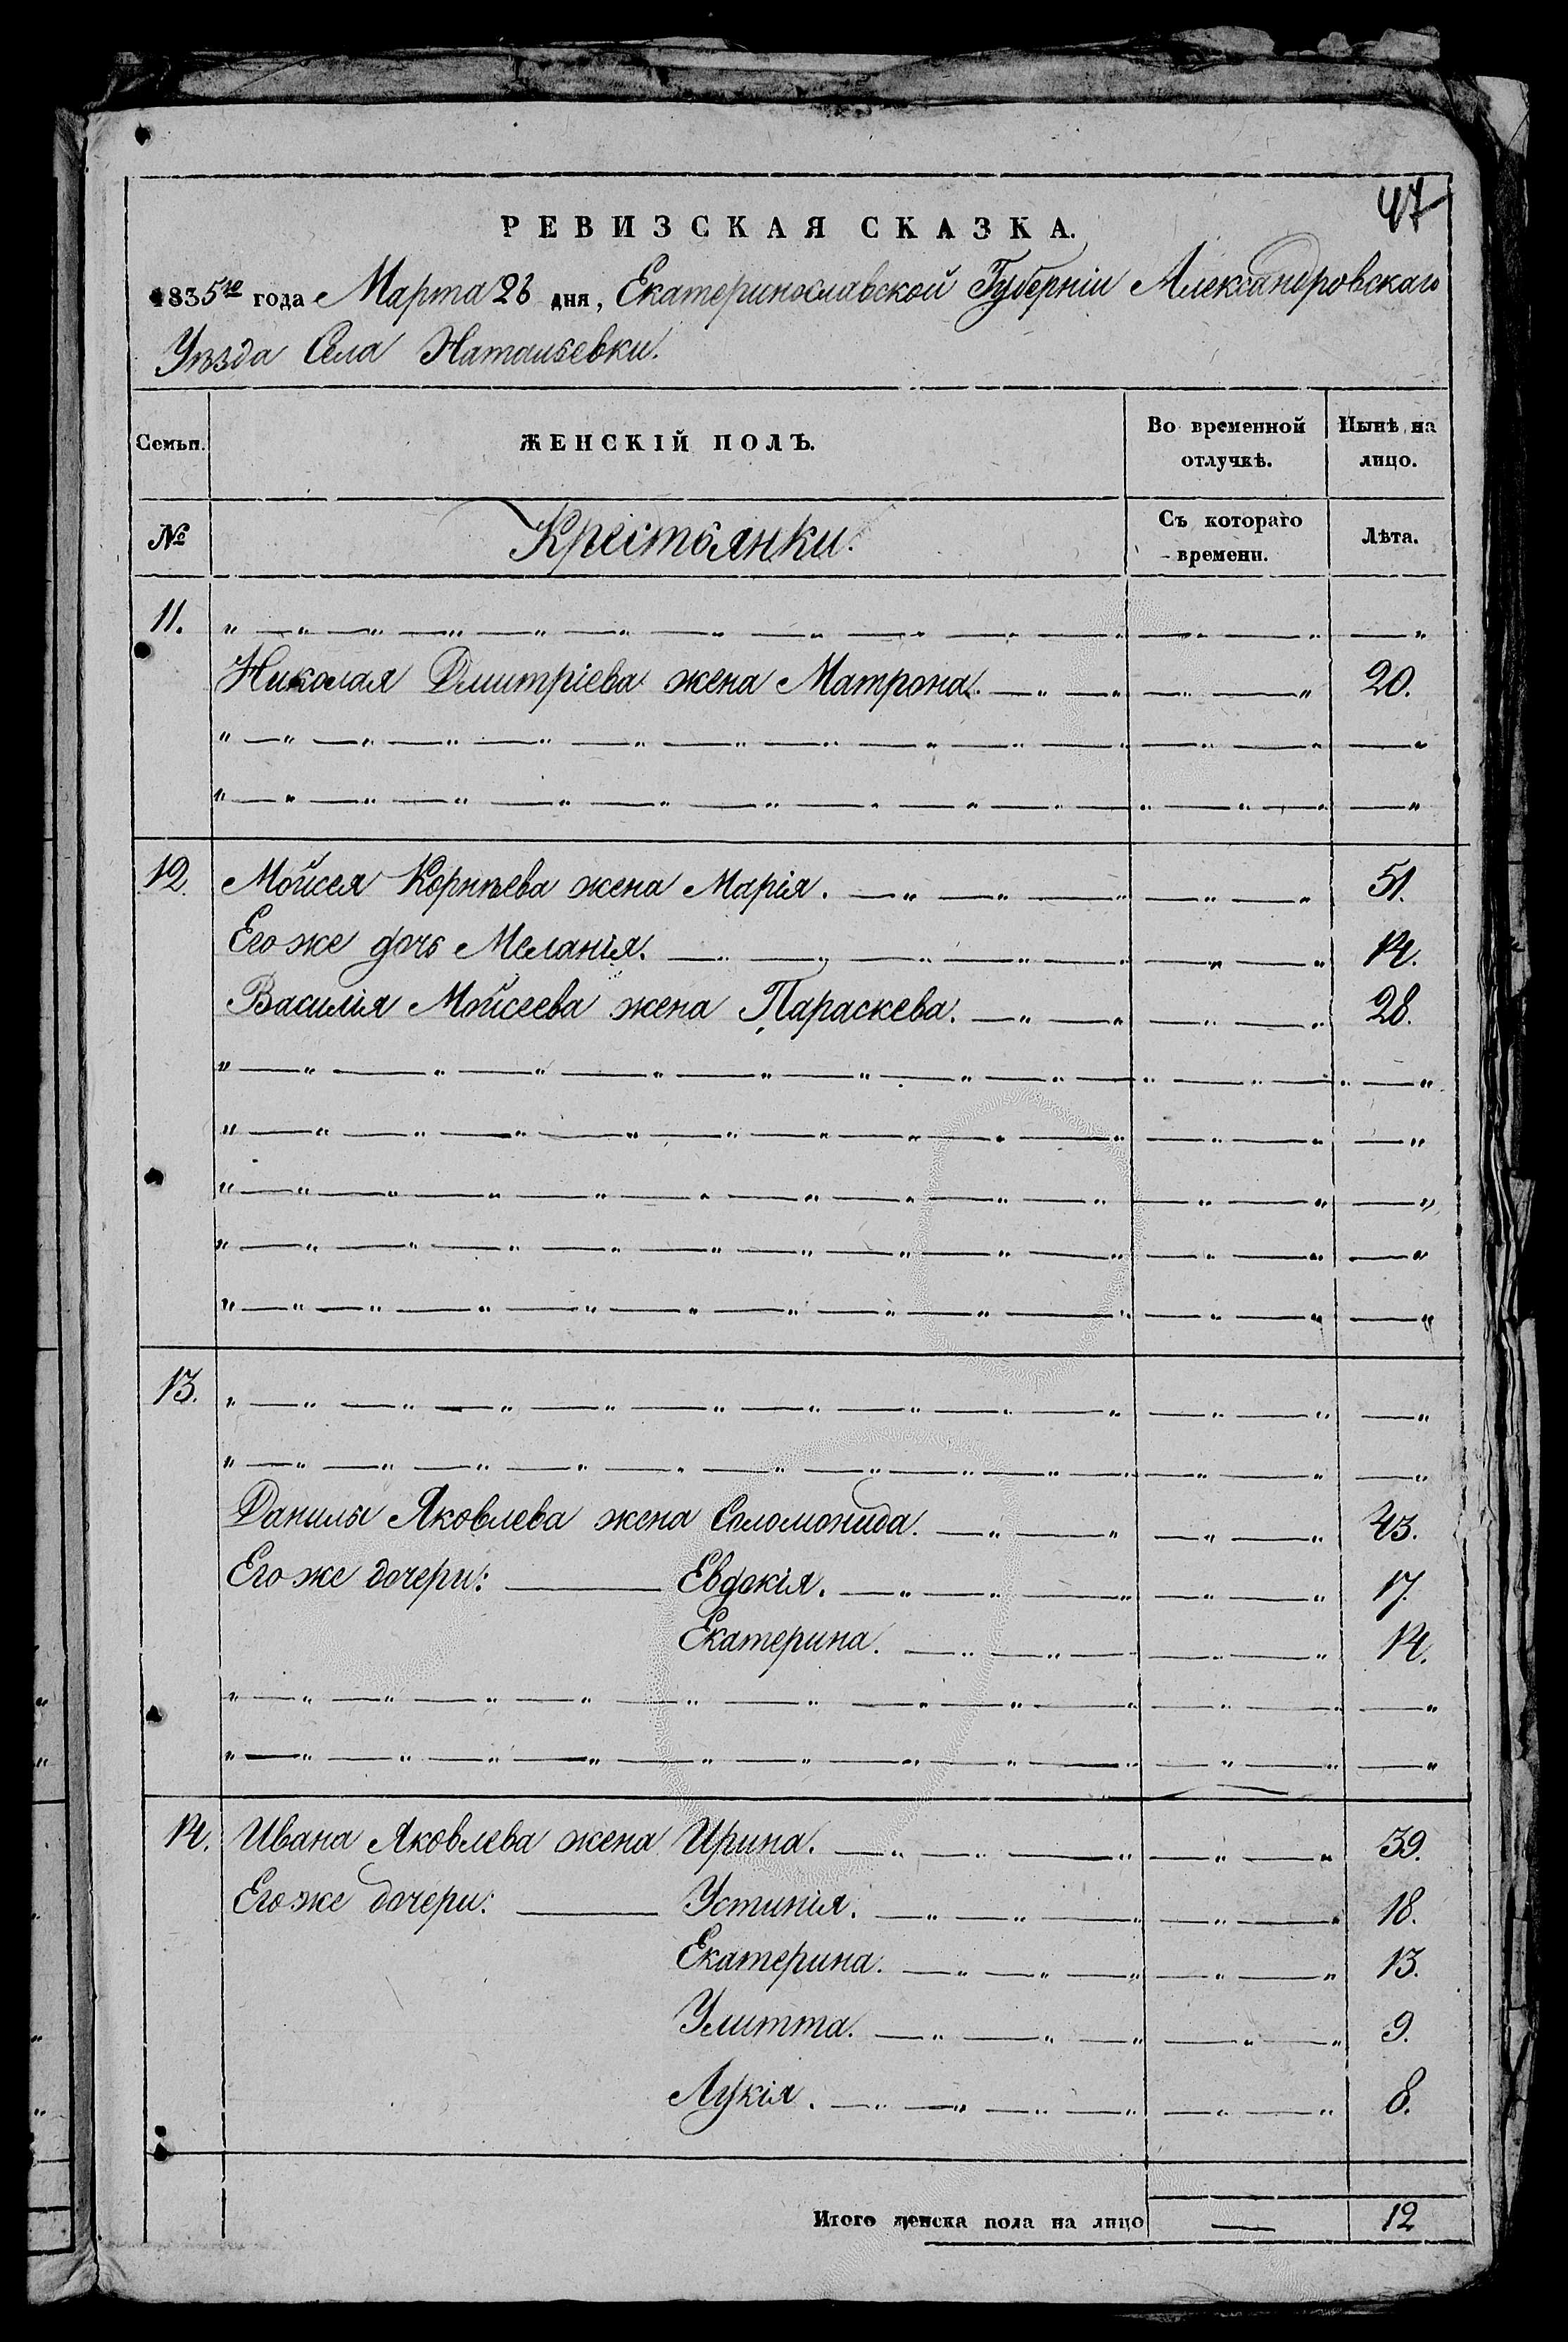 47
РЕВИЗСКАЯ СКАЗКА.
1835го года Марта 26 дня, Екатеринославской Губерніи Александровскаго
Уѣзда Села Натальевки.
Семьи. ЖЕНСКІЙ ПОЛЪ. Во временной отлучкѣ. Нынѣ на лицо.
№ Крестьянки. Съ котораго времени. Лѣта.
11.
Николая Дмитріева жена Матрона. 20.
12. Мойсея Корнѣева жена Марія. 51.
Его же дочь Меланія. 14.
Василія Мойсеева жена Параскева. 28.
13.
Данилы Яковлева жена Соломонида. 43.
Его же дочери: Евдокія. 17.
Екатерина. 14.
14. Ивана Яковлева жена Ирина. 39.
Его же дочери: Устинія. 18.
Екатерина. 13.
Улитта. 9.
Лукія. 8.
Итого женска пола на лицо — 12